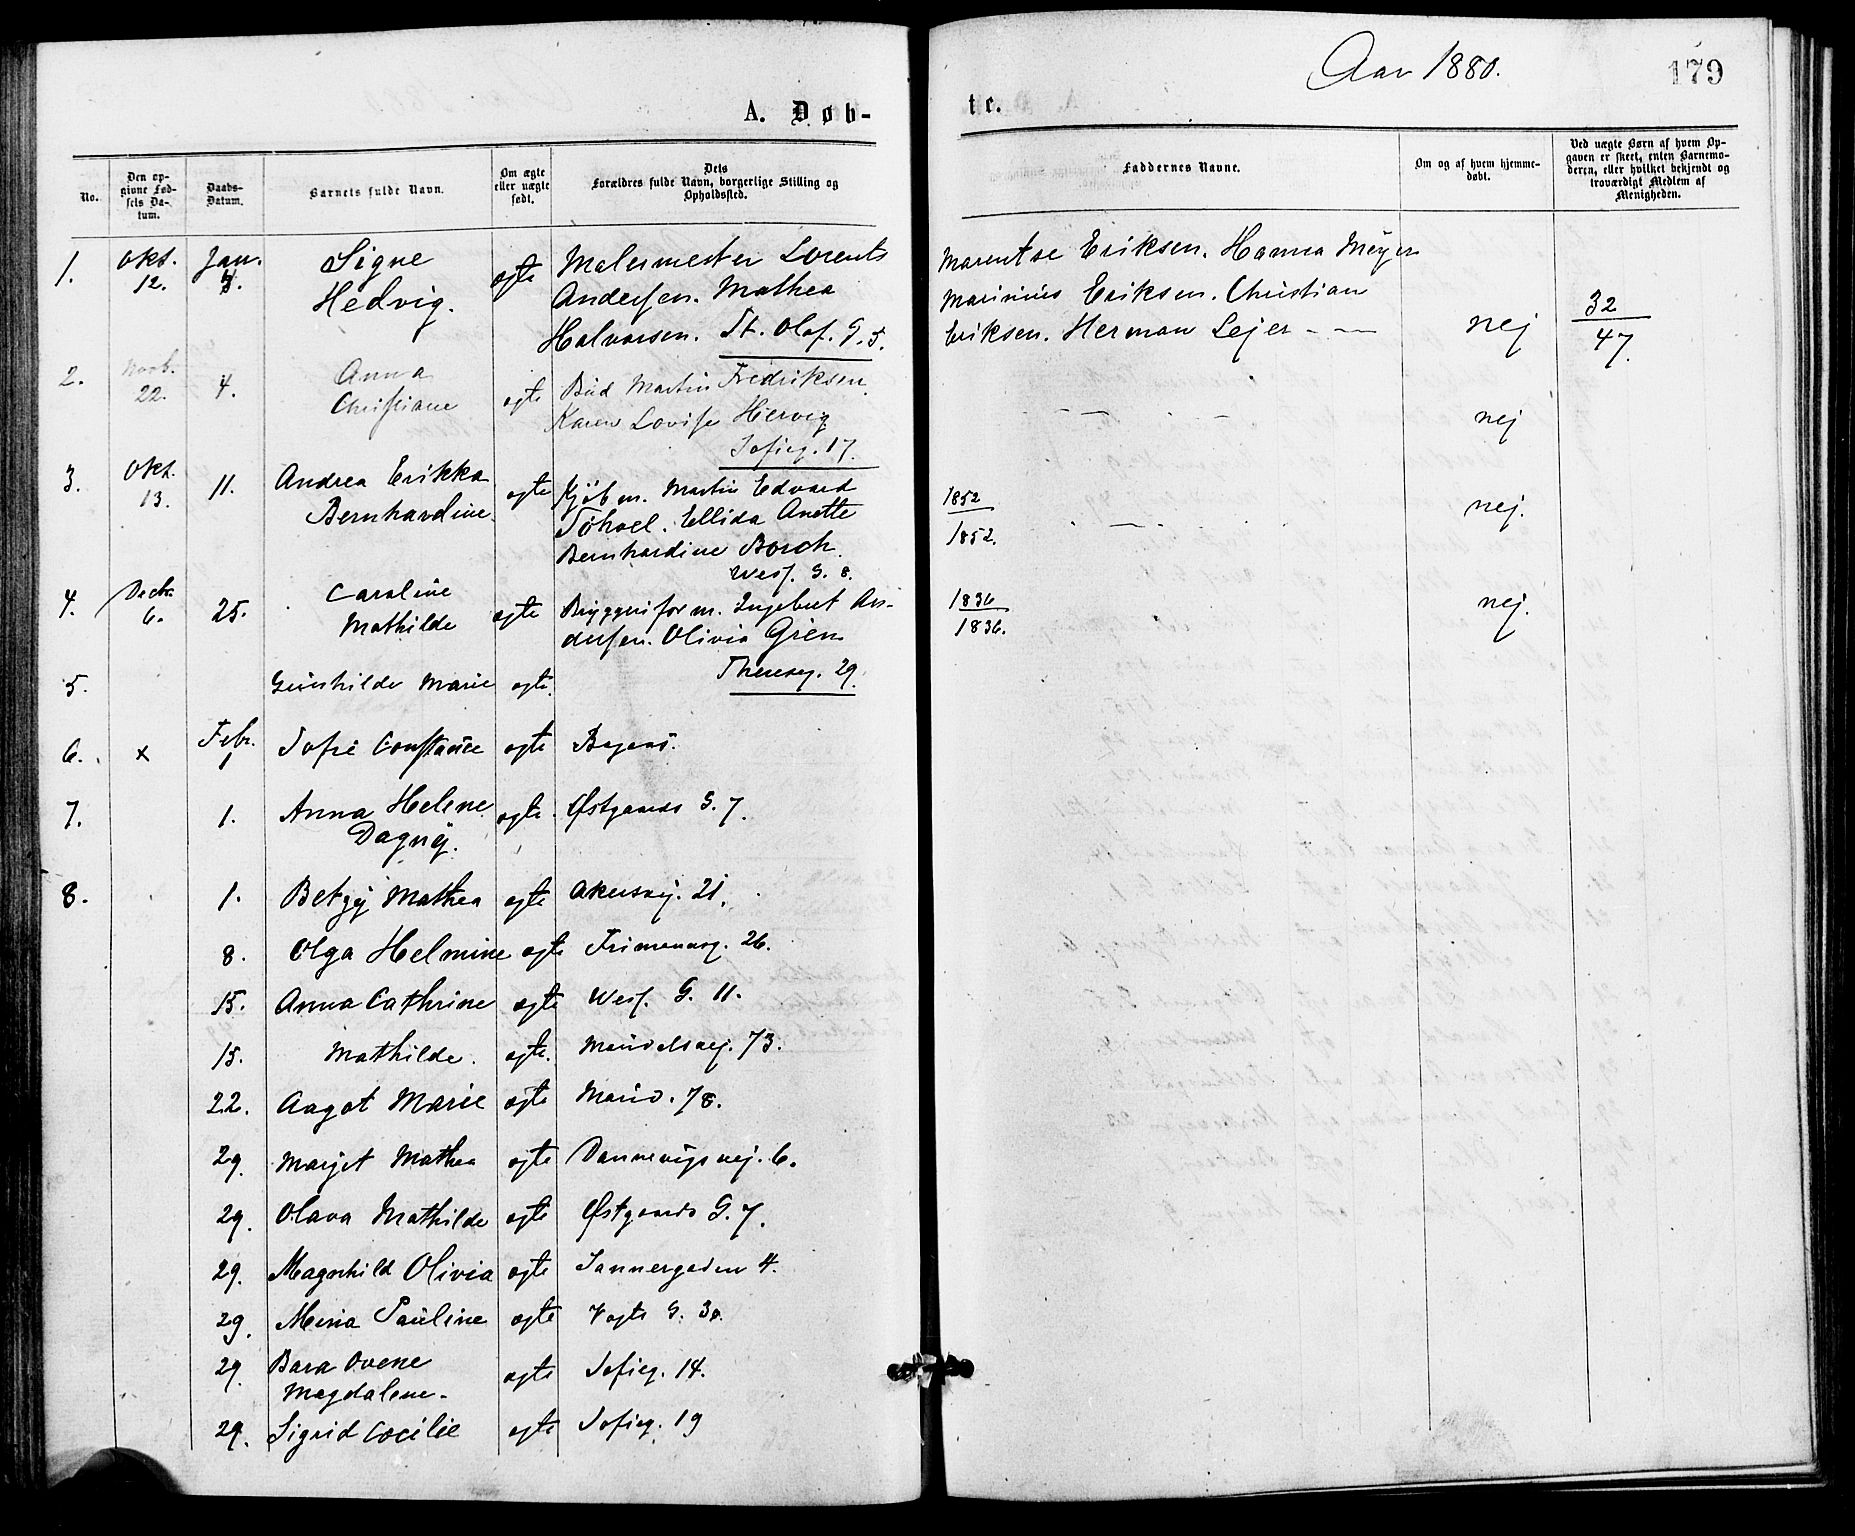 Aar 1880.
179
A. Døb-
te.
No.
Den op-
givne Fød-
sels Da-
tum.
Daabs-
Datum.
Barnets fulde Navn.
Om ægte
eller uægte
født.
Dets
Forældres fulde Navn, borgerlige Stilling og
Opholdssted.
Faddernes Navne.
Om og af hvem hjemme-
døbt.
Ved uægte Børn af hvem Op-
gaven er skeet, enten Barnemo-
deren, eller hvilket bekjendt og
troværdigt Medlem af
Menigheden.
1. Okt. 12. Jan. 4. Signe Hedvig. ægte Malermester Lorents
Andersen. Mathea
Halvorsen. St. Olaf. G. 5.
Marentse Eriksen. Hanna Meyer
Marinius Eriksen. Christian
Eriksen. Herman Lejer - —
nej
32
47.
2. Novb. 22. 4. Anna Christiane ægte Bud Martin Fredriksen.
Karen Lovise Hervig
Sofieg. 17.
nej
3. Okt. 13. 11. Andrea Erikka Bernhardine. ægte Kjøbm. Martin Edvard
Ellida Anette
Bernhardine Borch.
Wesf. G. 8.
1852
1852.
nej.
4. Decb. 6. 25. Caroline Mathilde ægte Bryggeriform. Ingebret An-
dersen. Olivia Gren
Thereseg. 29.
1836
1836.
nej.
5. Gunhilde Marie ægte.
6. x Febr. 1 Sofie Constance ægte
7. 1. Anna Helene Dagny. ægte. Østgaards G. 7.
8. 1. Betzy Mathea ægte Akersvej. 21.
8. Olga Helmine ægte Frimannsg. 26.
15. Anna Cathrine ægte Wesf. G. 11.
15. Mathilde. ægte. Maridalsvej. 73.
22. Aagot Marie ægte Marid. 78.
29. Marget Mathea ægte Dannevigsvej. 6.
29. Olava Mathilde ægte Østgaards G. 7.
29. Magnhild Olivia ægte Sannergaden 4.
29. Mina Pauline ægte Vogts G. 30.
29. Bara Ovene Magdalene. ægte Sofieg. 14.
29. Sigrid Cecilie ægte Sofieg. 19